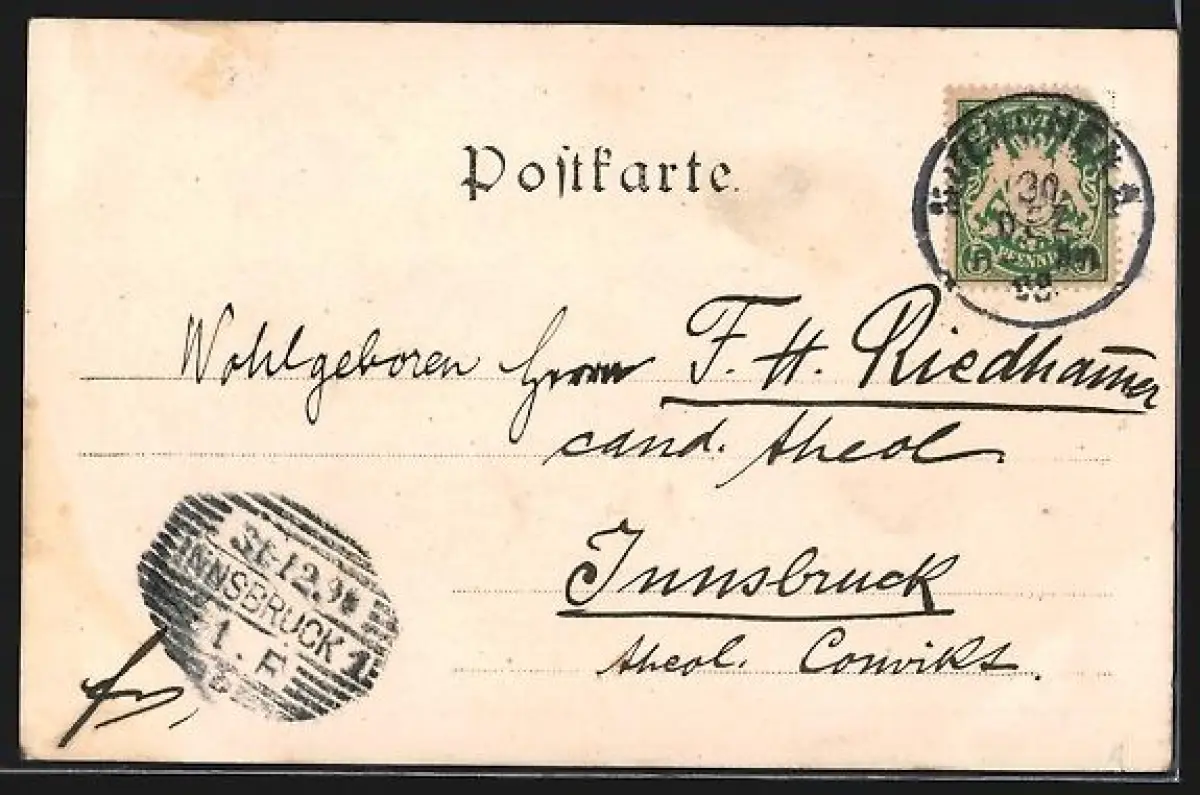 Postkarte.
30
DEZ
5 PFENNIG 5
Wohlgeboren Herrn F. H. Riedhammer
cand. theol.
31.12.98
INNSBRUCK 1
1. F
Innsbruck
theol. Convikt.